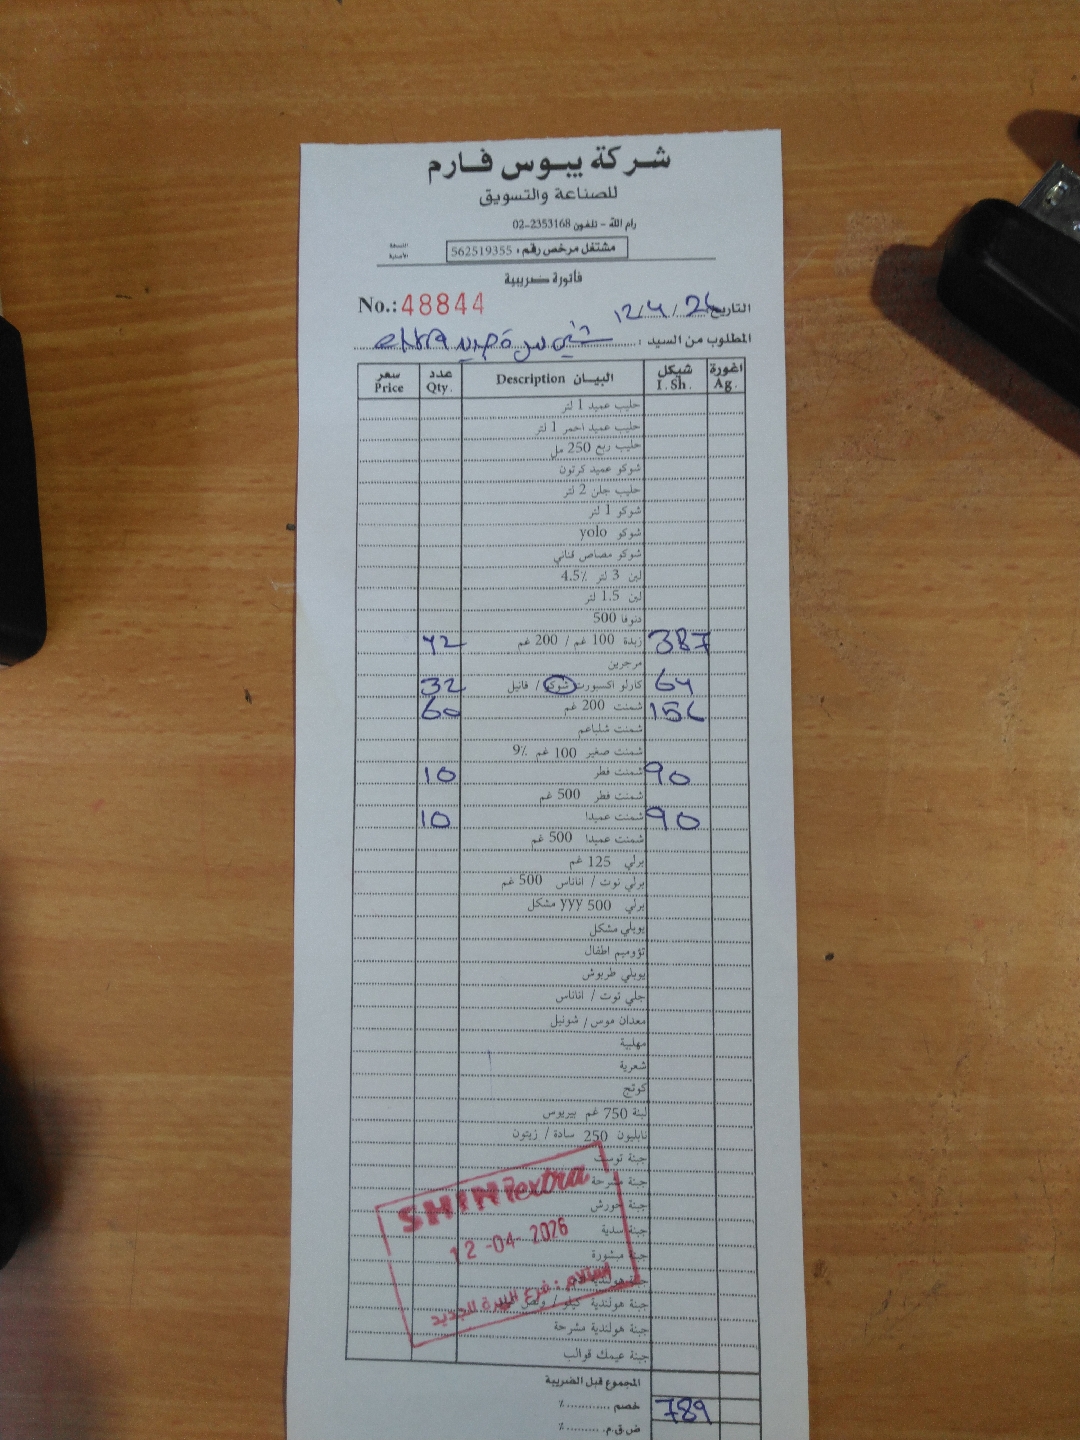 شركة يبوس فارم
للصناعة والتسويق
رام الله - تلفون 2353168-02
مشتغل مرخص رقم : 562519355
النسخة الأصلية
فاتورة ضريبية
No.: 48844
التاريخ 12/4/26
المطلوب من السيد :
سعر Price عدد Qty. البيــان Description شيكل I. Sh. اغورة Ag.
حليب عميد 1 لتر
حليب عميد احمر 1 لتر
حليب ربع 250 مل
شوكو عميد كرتون
حليب جلن 2 لتر
شوكو 1 لتر
شوكو yolo
شوكو مصاص قناني
لبن 3 لتر 4.5٪
لبن 1.5 لتر
دنوفا 500
42 زبدة 100 غم / 200 غم 387
مرجرين
32 كارلو اكسبورت شوكو / فانيل 64
60 شمنت 200 غم 156
شمنت شلباعم
شمنت صغير 100 غم 9٪
10 شمنت فطر 90
شمنت فطر 500 غم
10 شمنت عميدا 90
شمنت عميدا 500 غم
برلي 125 غم
برلي توت / اناناس 500 غم
برلي 500 yyy مشكل
يوبلي مشكل
تؤوميم اطفال
يوبلي طربوش
جلي توت / اناناس
معدان موس / شونيل
مهلبية
شعرية
كوتج
لبنة 750 غم بيريوس
نابليون 250 سادة / زيتون
جبنة توست
جبنة مشرحة
جبنة حورش
جبنة سدية
جبنة مبشورة
جبنة هولندية
جبنة هولندية كيلو /
جبنة هولندية مشرحة
جبنة عيمك قوالب
SHINI extra
12 -04- 2026
استلام : فرع البيرة الجديد
المجموع قبل الضريبة
خصم ............ ٪ 789
ض.ق.م. ......... ٪